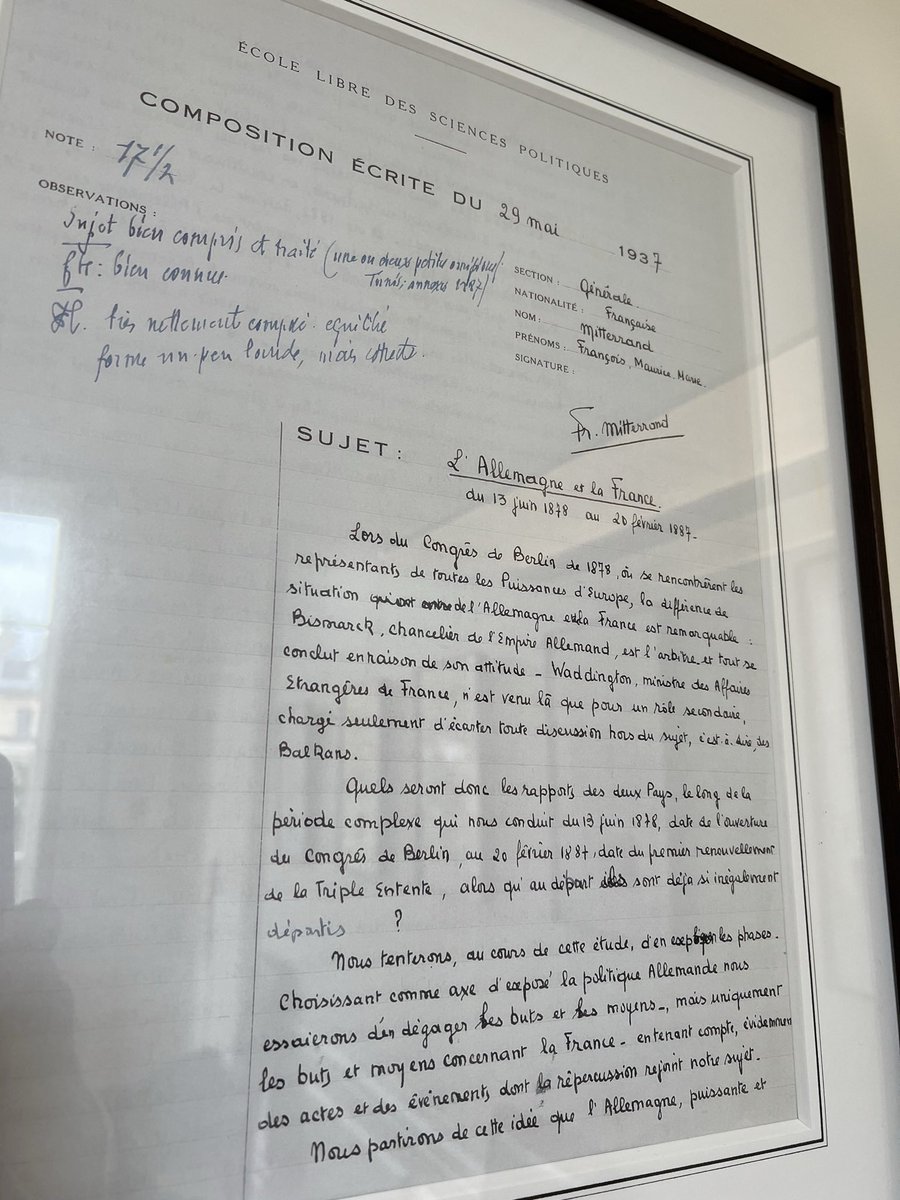 ÉCOLE LIBRE DES SCIENCES POLITIQUES
COMPOSITION ÉCRITE DU 29 mai 1937
NOTE : 17 1/2
OBSERVATIONS :
Sujet bien compris et traité (une ou deux petites
Tunis, annexes 1887)
: bien connu
très nettement composé. équilibré
forme un peu lourde, mais correcte.
SECTION : Générale
NATIONALITÉ : Française
NOM : Mitterrand
PRÉNOMS : François, Maurice, Marie.
SIGNATURE :
Fr. Mitterrand
SUJET : L'Allemagne et la France.
du 13 juin 1878 au 20 février 1887.
Lors du Congrès de Berlin de 1878, où se rencontrèrent les
représentants de toutes les Puissances d'Europe, la différence de
situation de l'Allemagne et la France est remarquable :
Bismarck, chancelier de l'Empire Allemand, est l'arbitre et tout se
conclut en raison de son attitude - Waddington, ministre des Affaires
Etrangères de France, n'est venu là que pour un rôle secondaire,
chargé seulement d'écarter toute discussion hors du sujet, c'est-à-dire, des
Balkans.
Quels seront donc les rapports des deux Pays, le long de la
période complexe qui nous conduit du 13 juin 1878, date de l'ouverture
du Congrès de Berlin, au 20 février 1887, date du premier renouvellement
de la Triple Entente, alors qu'au départ ils sont déjà si inégalement
départis ?
Nous tenterons, au cours de cette étude, d'en les phases.
Choisissant comme axe d'exposé la politique Allemande nous
essaierons d'en dégager les buts et les moyens -, mais uniquement
les buts et moyens concernant la France - en tenant compte, évidemment
des actes et des événements dont la répercussion rejoint notre sujet.
Nous partirons de cette idée que l'Allemagne, puissante et